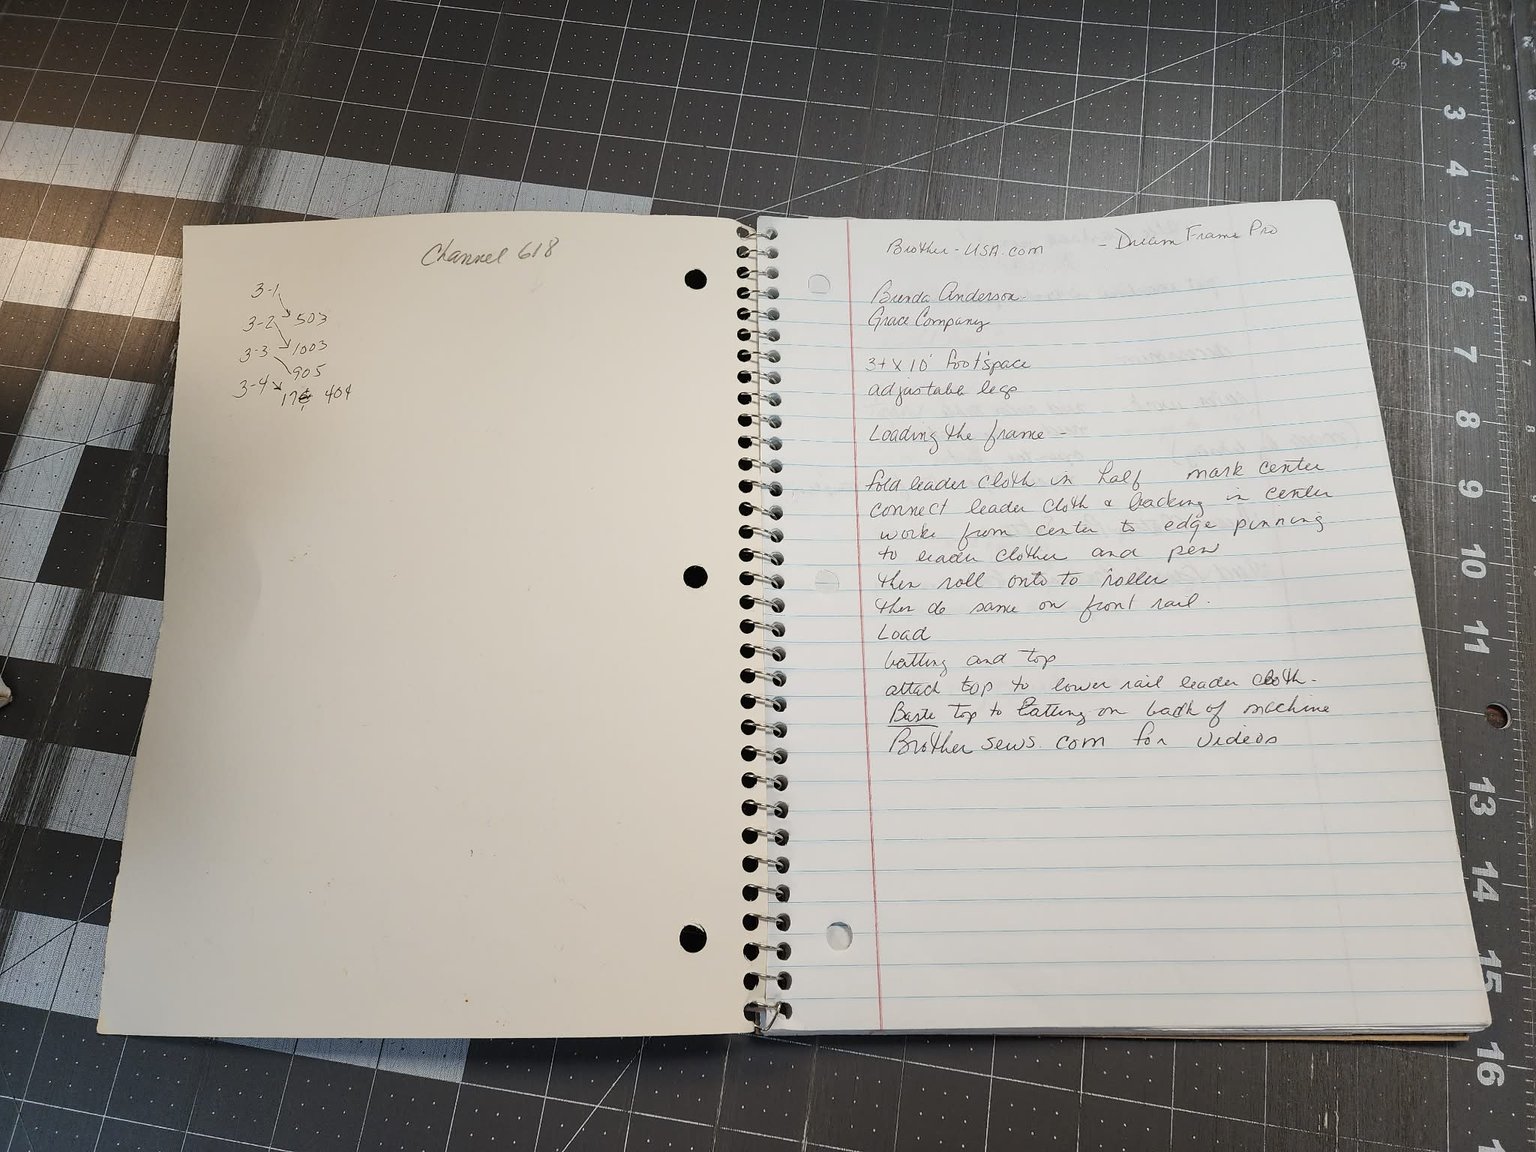 Channel 618
3-1
3-2 503
3-3 1003
905
3-4 404
Brother-USA.com - Dream Frame Pro
Brenda Anderson
Grace Company
3+ x 10' foot space
adjustable legs
Loading the frame -
fold leader cloth in half mark center
connect leader cloth & backing in center
work from center to edge pinning
to leader cloth and
then roll onto to roller
then do same on front rail.
Load
batting and top
attach top to lower rail leader cloth.
Baste top to batting on back of machine
Brother sews.com for videos
1
2
3
4
5
6
7
8
9
10
11
13
14
15
16